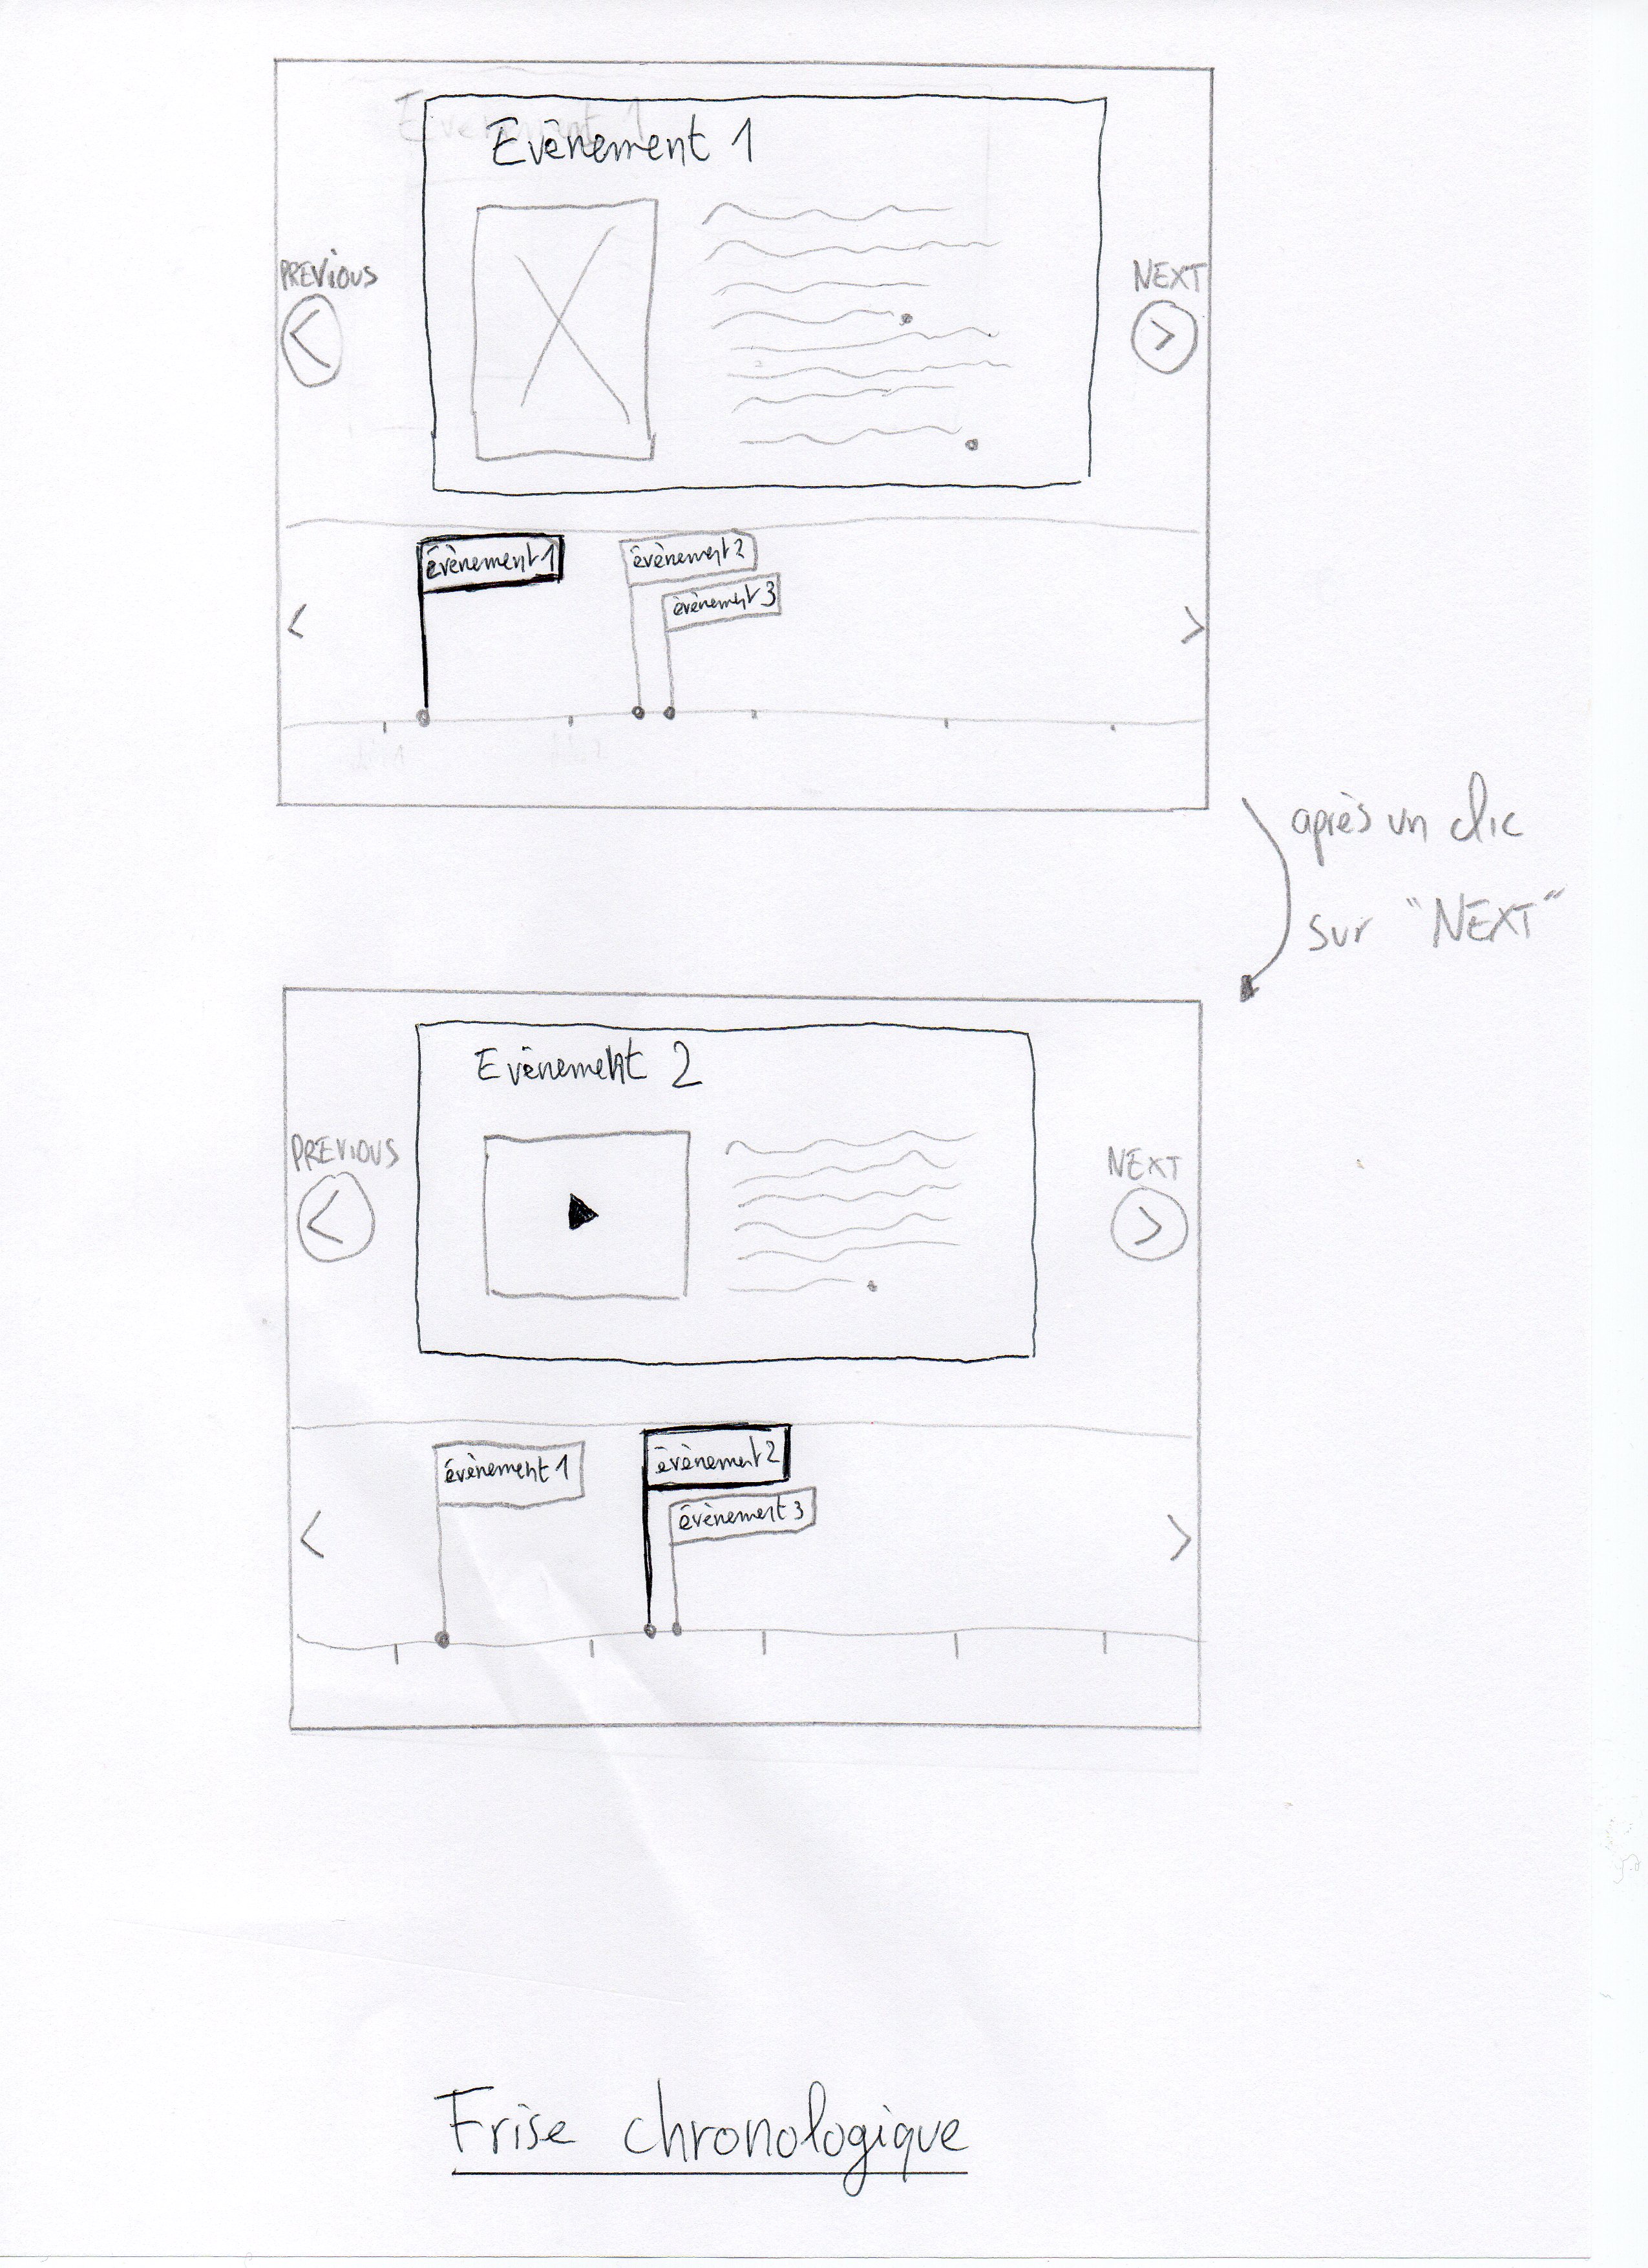 Evènement 1
PREVIOUS
NEXT
évènement 1
évènement 2
évènement 3
après un clic
sur "NEXT"
Evènement 2
PREVIOUS
NEXT
évènement 1
évènement 2
évènement 3
Frise chronologique